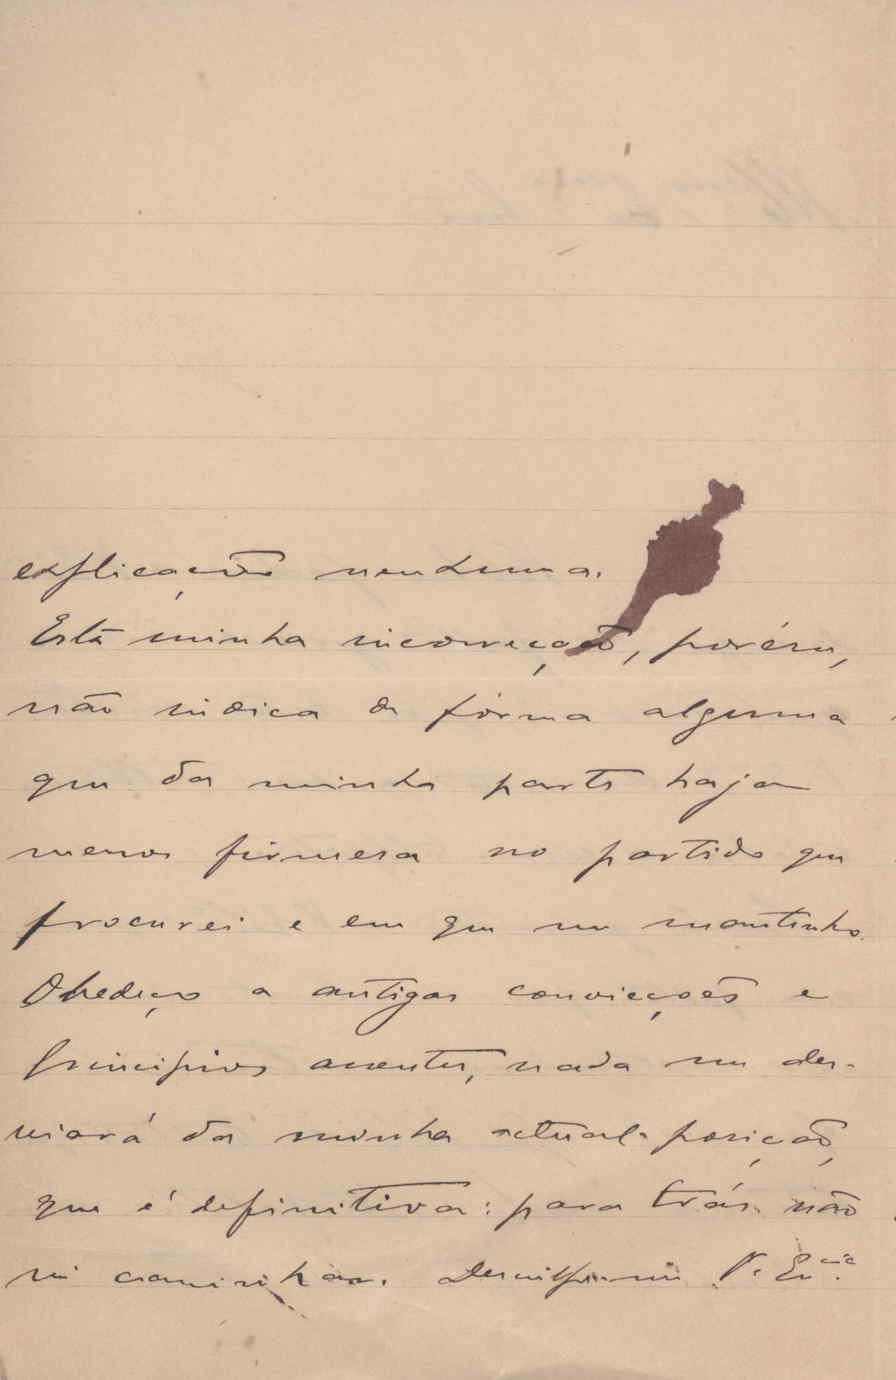 explicações nenhuma.
Está minha incorreção, porém,
não indica de fórma alguma
que da minha parte haja
menos firmesa no partido que
procurei e em que me mantenho.
Obedeço a antigas convicções e
principios assentes, nada me des-
viará da minha actual posição,
que é definitiva: para trás não
sei caminhar. Desculpe-me V. Ex.cia